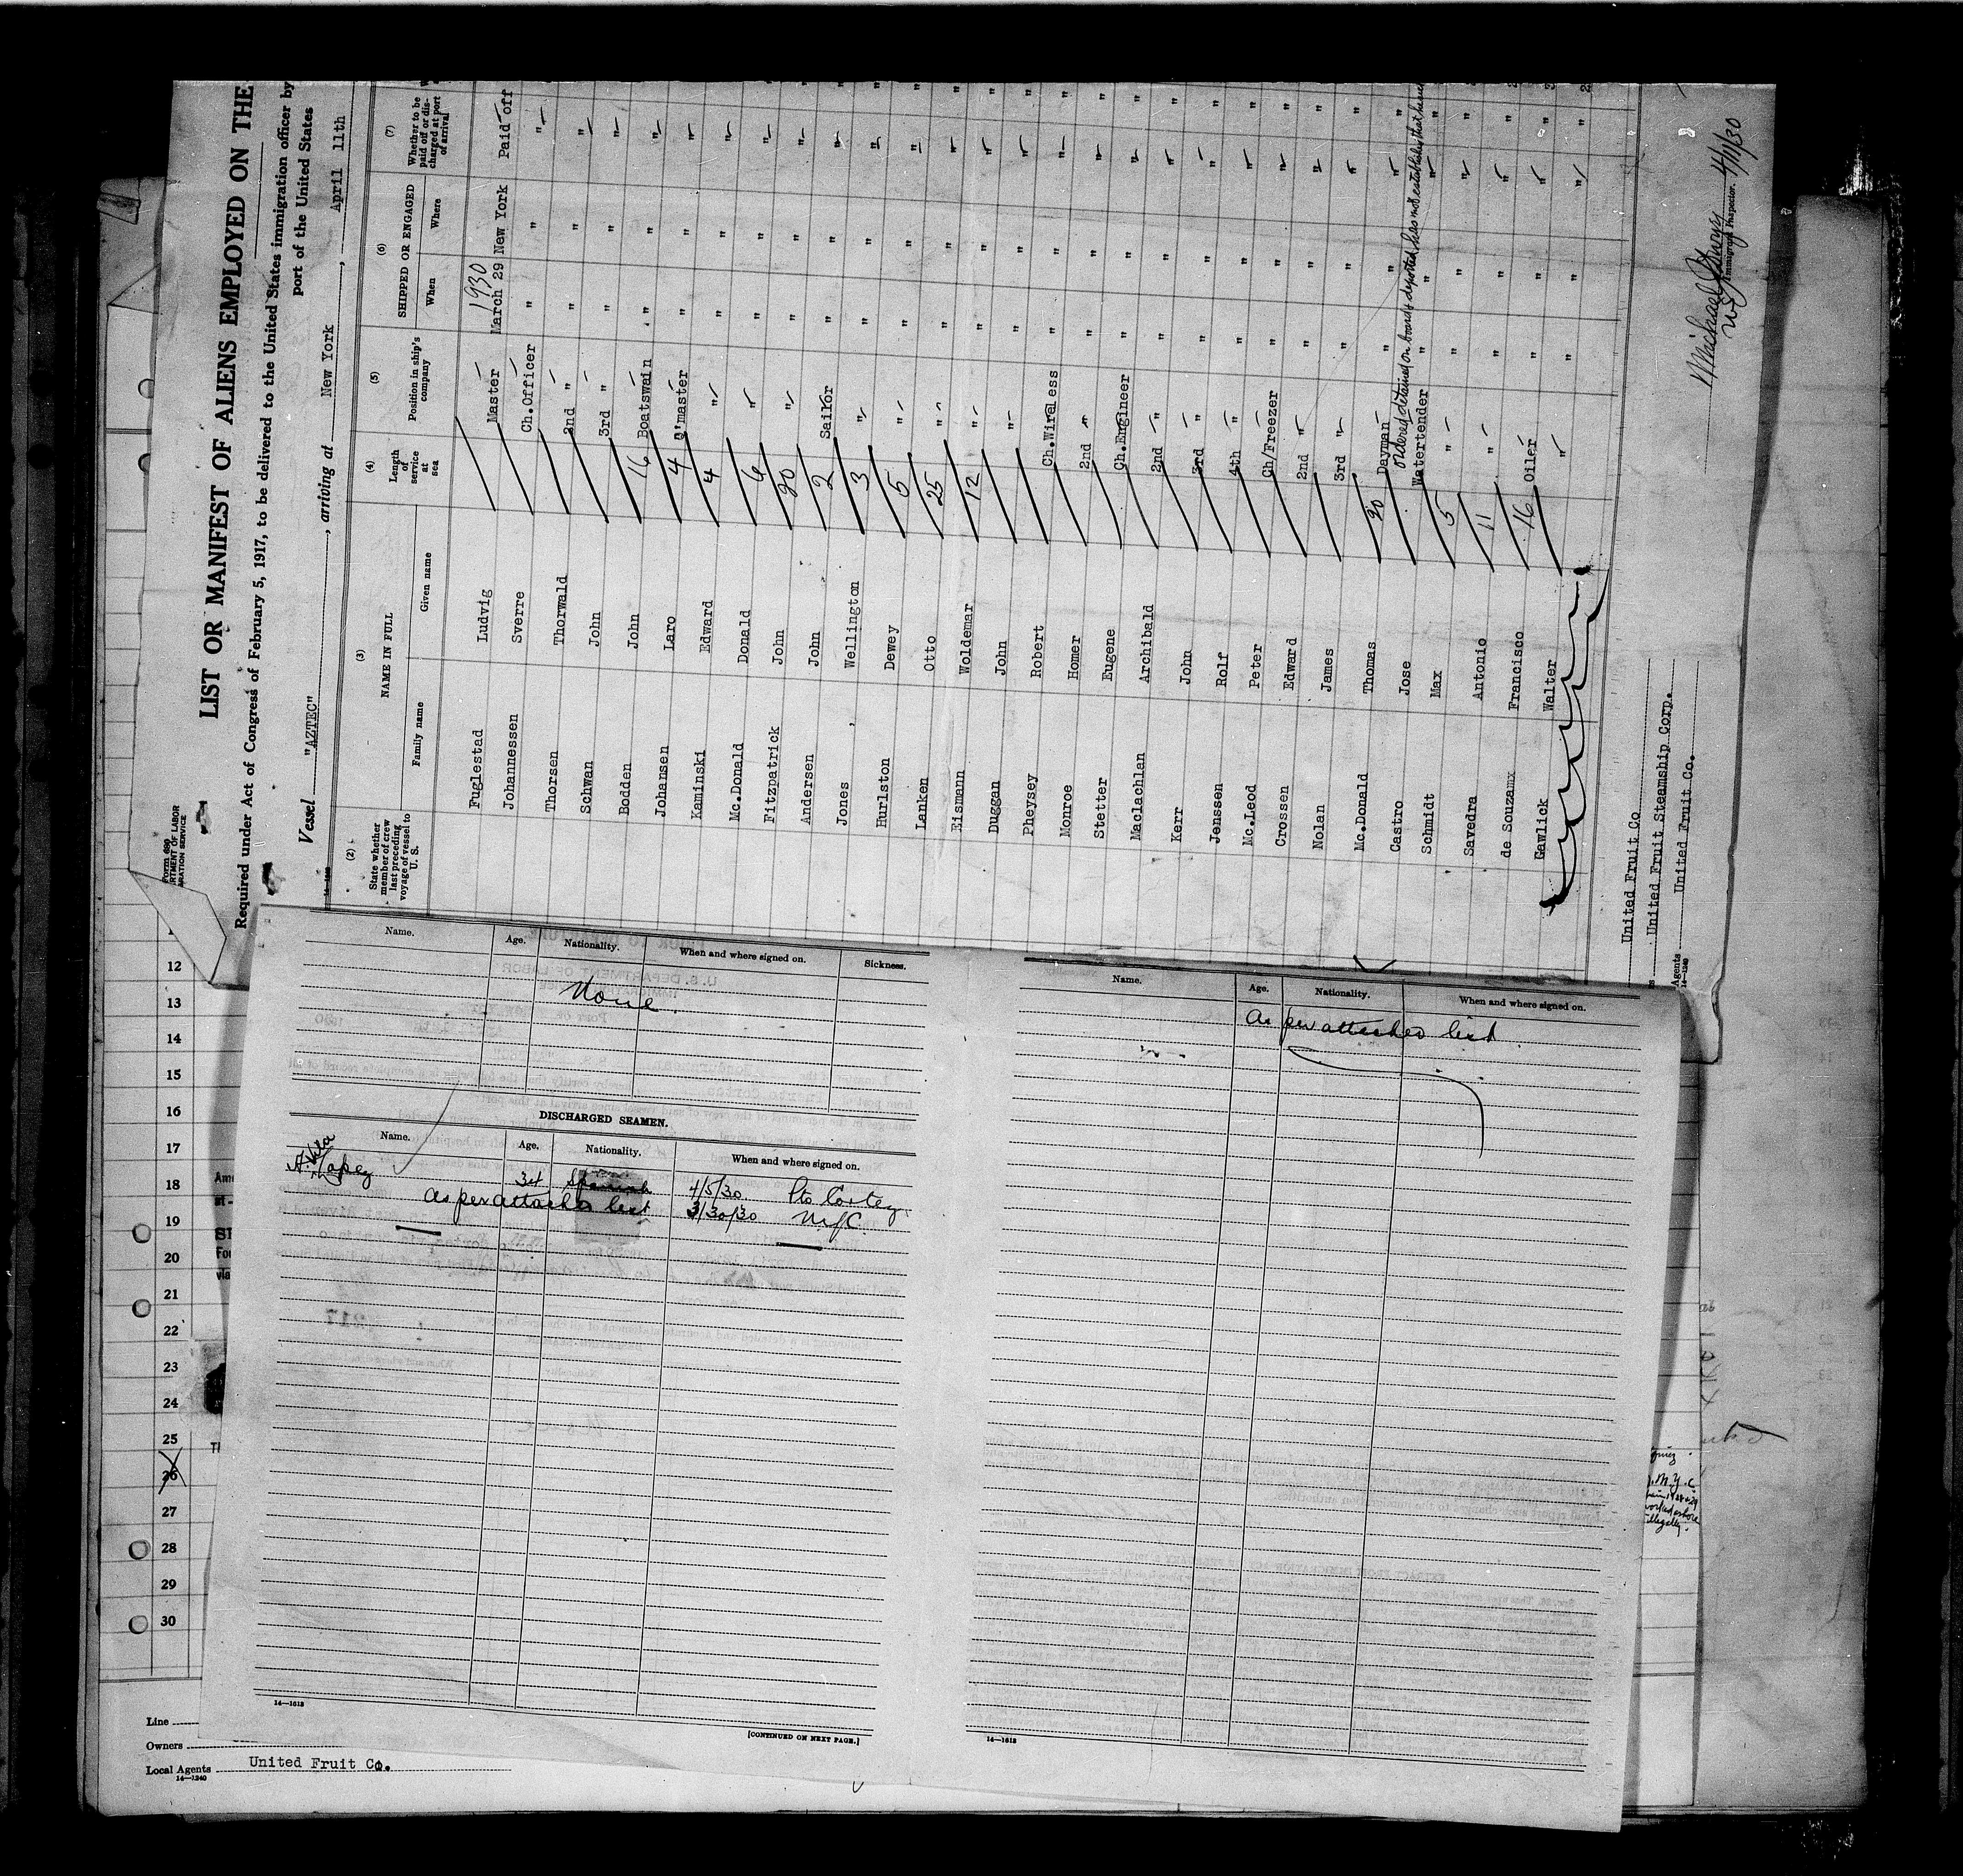 Form 689
LIST OR MANIFEST OF ALIENS EMPLOYED ON THE
Required under Act of Congress of February 5, 1917, to be delivered to the United States immigration officer by
port of the United States
Vessel "AZTEC", arriving at New York, April 11th
(2) (3) (4) (5) (6) (7)
State whether member of crew last preceding voyage of vessel to U. S.
NAME IN FULL
Family name Given name
Length of service at sea
Position in ship's company
SHIPPED OR ENGAGED
When Where
Whether to be paid off or discharged at port of arrival
1930
Fuglestad Ludvig Master March 29 New York Paid off
Johannessen Sverre Ch.Officer " " "
Thorsen Thorwald 2nd " " " "
Schwan John 3rd " " " "
Bodden John 16 Boatswain " " "
Johansen Laro 4 Q'master " " "
Kaminski Edward 4 " " " "
Mc.Donald Donald 6 " " " "
Fitzpatrick John 20 " " " "
Andersen John 2 Sailor " " "
Jones, Wellington 3 " " " "
Hurlston Dewey 5 " " " "
Lanken Otto 25 " " " "
Eismann Woldemar 12 " " " "
Duggan John " " " "
Pheysey Robert Ch.Wireless " " "
Monroe Homer 2nd " " " "
Stetter Eugene Ch.Engineer " " "
Maclachlan Archibald 2nd " " " "
Kerr John 3rd " " " "
Jenssen Rolf 4th " " " "
Mc.Leod Peter Ch/Freezer " " "
Crossen Edward 2nd " " " "
Nolan James 3rd " " " "
Mc.Donald Thomas 20 Dayman " " "
ordered detained on board & deported, has not established that he
Castro Jose Watertender " " "
Schmidt Max 5 " " " "
Savedra Antonio 11 " " " "
de Souzamx Francisco 16 Oiler " " "
Gawlick Walter " " " "
United Fruit Co
United Fruit Steamship Corp.
Agents United Fruit Co.
14—1240
Michael
Immigrant Inspector. 4/11/30
Name. Age. Nationality. When and where signed on. Sickness.
None.
DISCHARGED SEAMEN.
Name. Age. Nationality. When and where signed on.
A. Lopez 34 Spanish 4/5/30. Pto Cortez
As per attached list 3/30/30 NYC.
14—1618
[CONTINUED ON NEXT PAGE.]
Name. Age. Nationality. When and where signed on.
As per attached list
14—1618
12
13
14
15
16
17
18
19
20
21
22
23
24
25
26
27
28
29
30
Line
Owners
Local Agents United Fruit Co.
14—1240